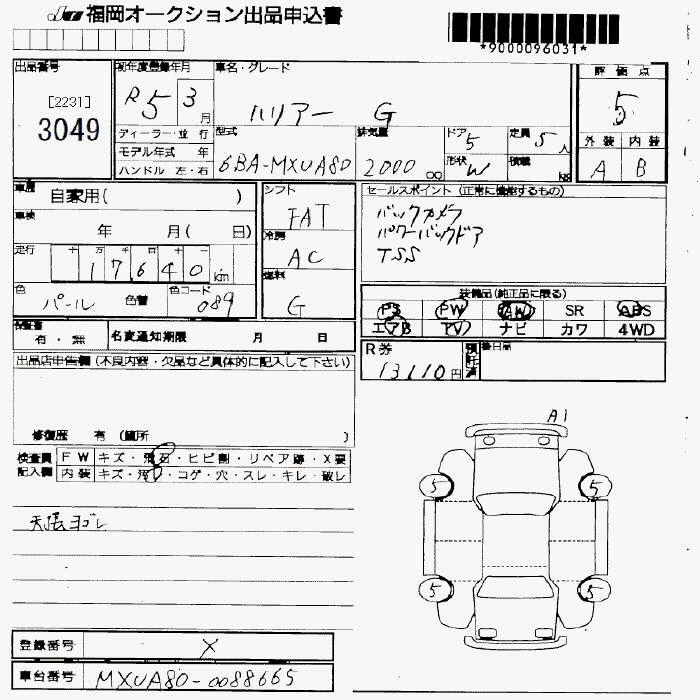 JU 福岡オークション出品申込書
*9000096031*
出品番号 初年度登録年月 車名・グレード 評価点
[2231]
3049
R5 3月 ハリアー G 5
ディーラー・並行 型式 排気量 ドア 5 定員 5人 外装 内装
モデル年式 年 6BA-MXUA80 2000cc 形状 W 積載 KG A B
ハンドル 左・右
車歴 自家用( ) シフト セールスポイント (正常に機能するもの)
FAT バックカメラ
車検 年 月( 日) 冷房 パワーバックドア
走行 十 万 千 百 十 一 AC TSS
17640km 燃料
色 パール 色替 色コード 089 G
装備品(純正品に限る)
PS PW AW SR ABS
エアB TV ナビ カワ 4WD
保証書 有・無 名変通知期限 月 日
R券 預託済 後日品
13110円
出品店申告欄 (不良内容・欠品など具体的に記入して下さい)
修復歴 有 (箇所 )
A1
検査員 FW キズ・飛石・ヒビ割・リペア跡・X要
記入欄 内装 キズ・汚れ・コゲ・穴・スレ・キレ・破レ
5 5
天張ヨゴレ
5 5
登録番号 X
車台番号 MXUA80-0088665